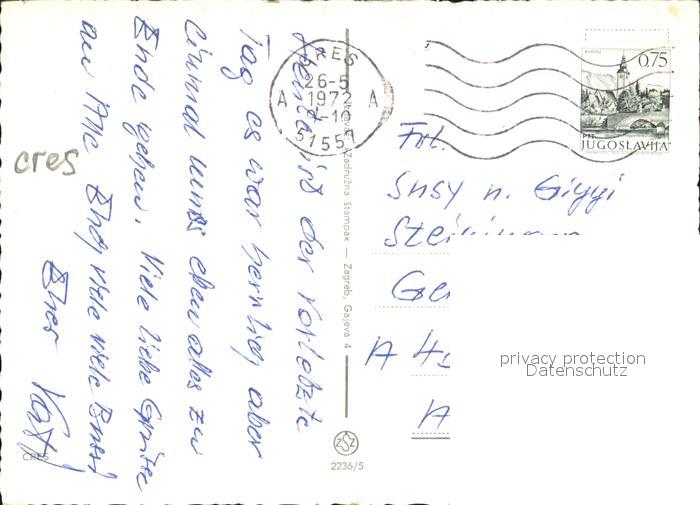 Heute ist der vorletzte
Tag es war herrlich aber
einmal muss eben alles zu
Ende gehen. Viele liebe Grüsse
an Alle Euch viele viele Bussi
Euer
cres
CRES
CRES
26-5
1972
A A
51557
Zadružna štampa — Zagreb, Gajeva 4
2236/5
0,75
JUGOSLAVIJA
Susy u. Giggi
A
A
privacy protection
Datenschutz